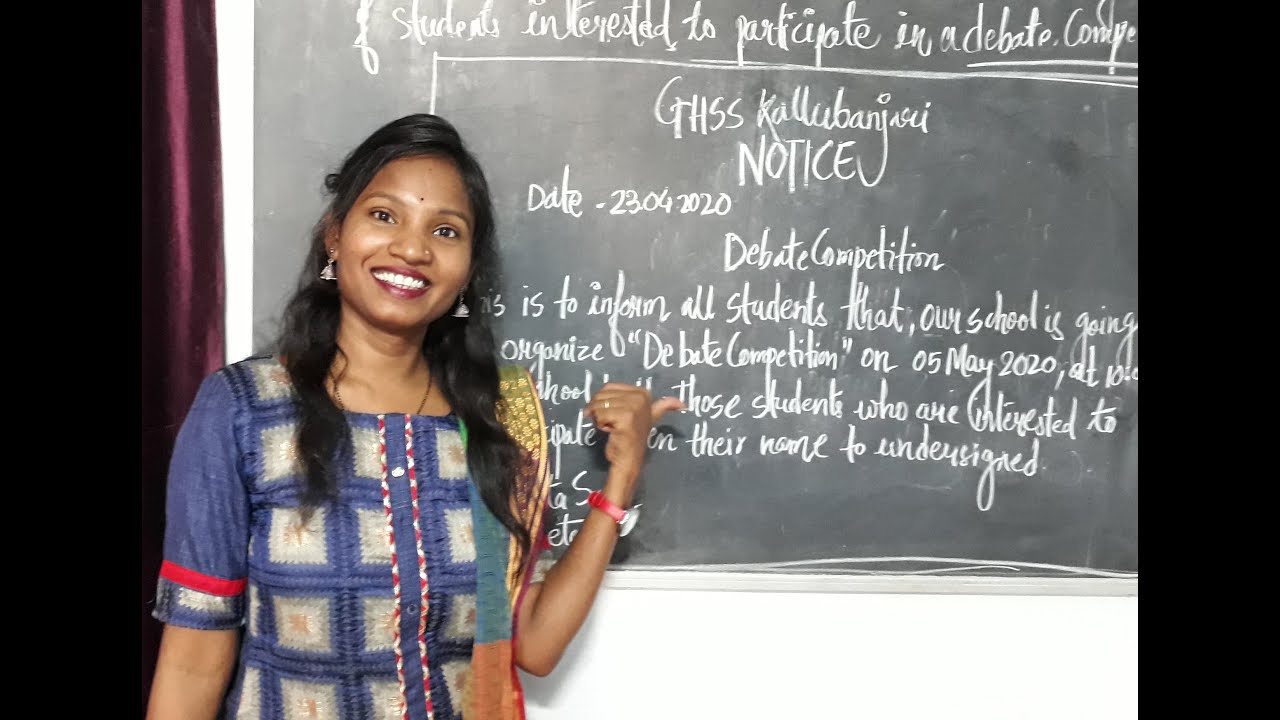 of students interested to participate in a debate. Compe
GHSS Kallubanjari
NOTICE
Date - 23.04.2020
Debate Competition
is is to inform all students that, our school is going
organize "Debate Competition" on 05 May 2020, at 10:0
hool those students who are interested to
ipate en their name to undersigned.
ta S
eta